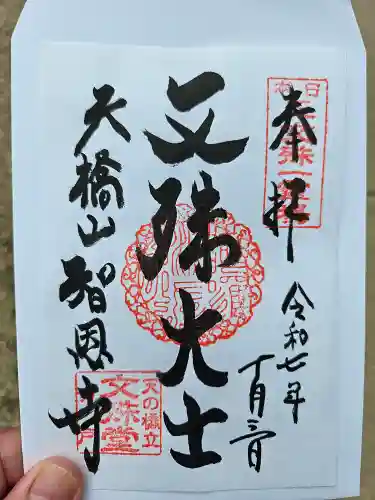 奉拝
令和七年
十月三日
文殊大士
天橋山智恩寺
天の橋立
文殊堂